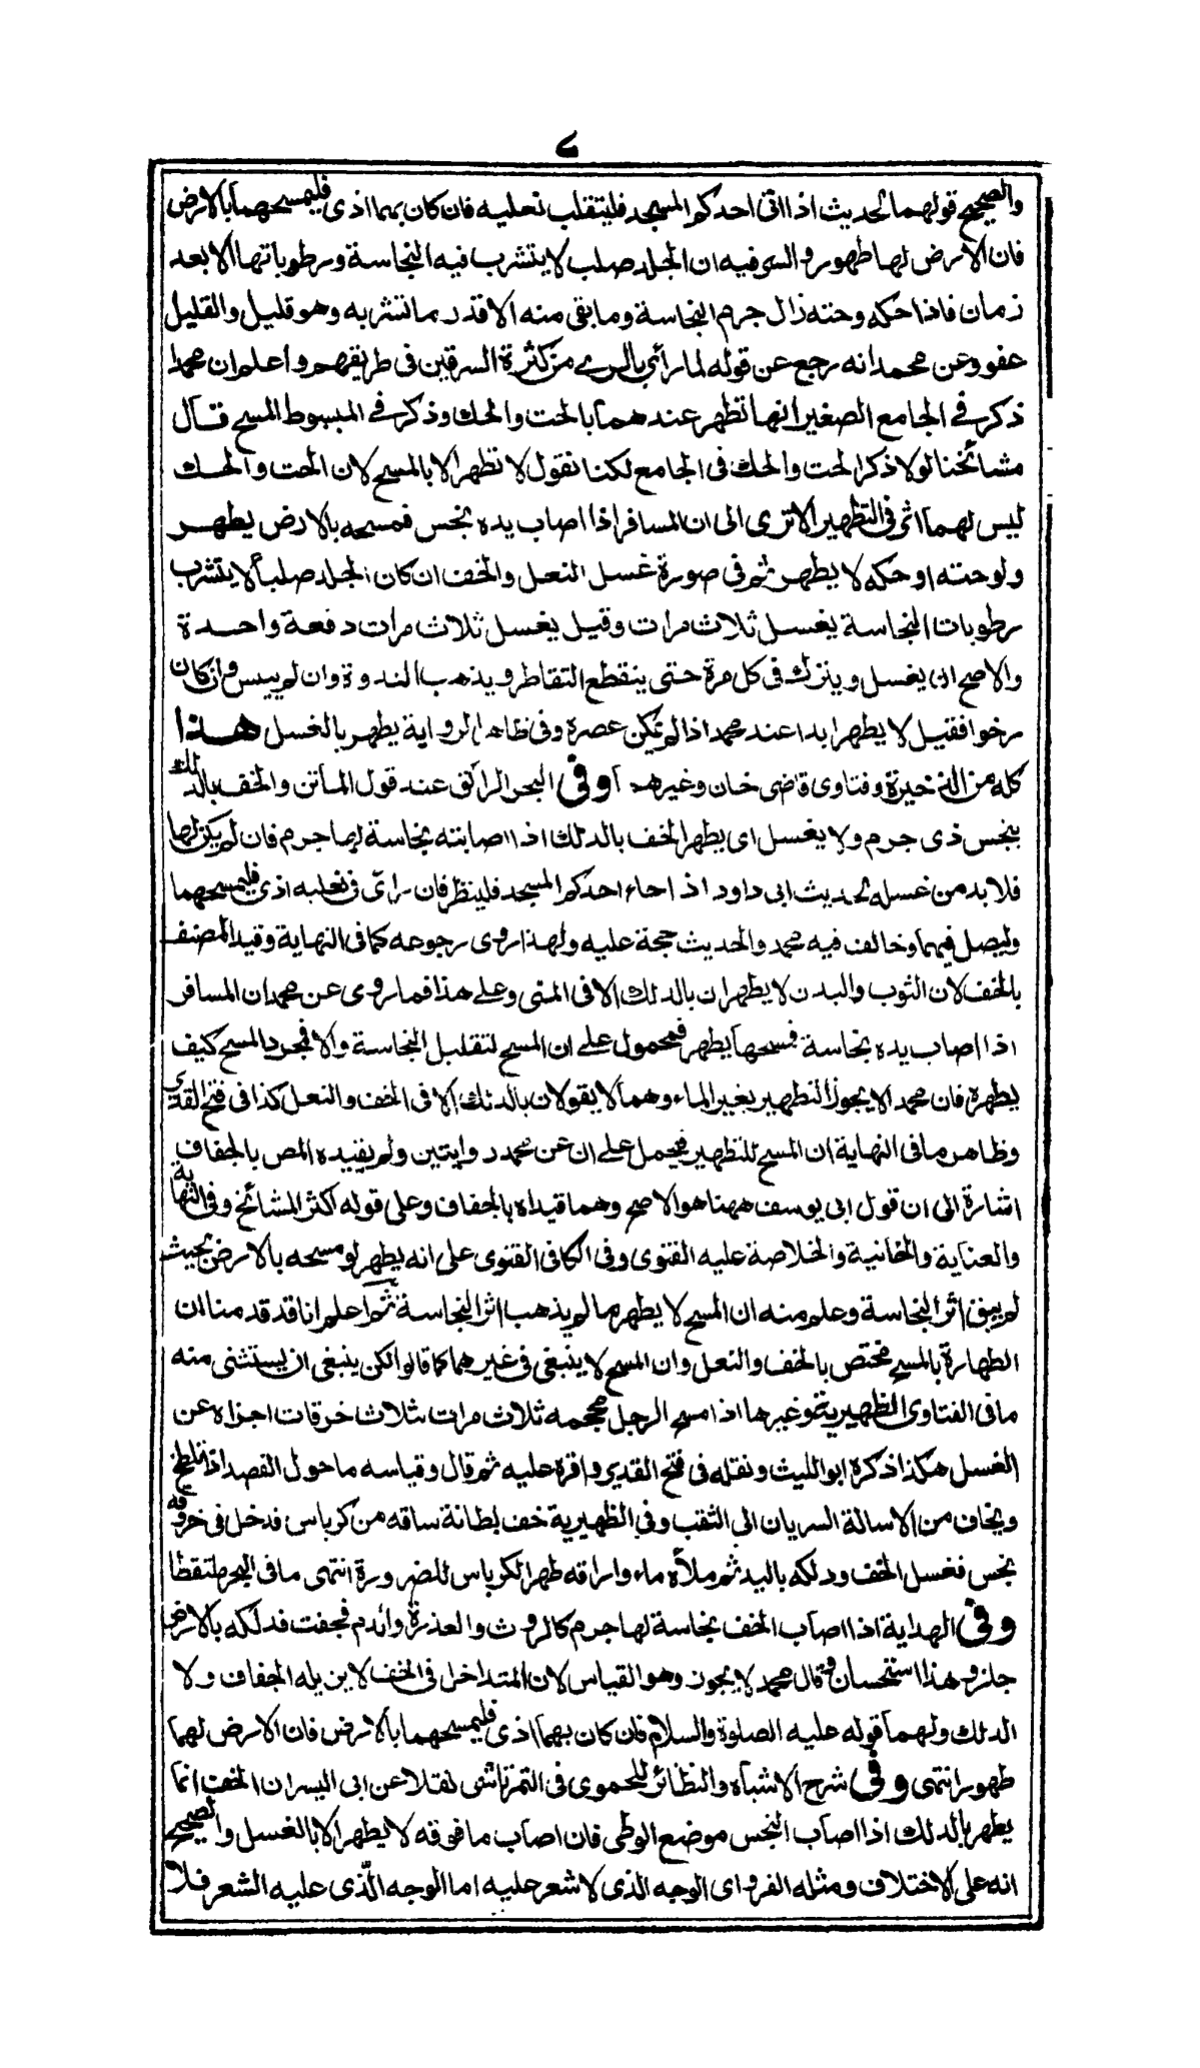 ٧
والصحيح قولهما لحديث اذا اتى احدكم المسجد فليتقلب نعليه فان كان بهما اذى فليمسحهما بالارض
فان الارض لها طهور والسر فيه ان الجلد صلب لا يتشرب فيه النجاسة ورطوباتها الا بعد
زمان فاذا حكه وحته زال جرم النجاسة وما بقى منه الا قدر ما تشربه وهو قليل والقليل
عفو وعن محمد انه رجع عن قوله لما رأى بالرے من كثرة السرقين فى طريقهم واعلم ان محمدا
ذكر فے الجامع الصغير انها تطهر عندهما بالحت والحك وذكر فے المبسوط المسح قال
مشائخنا لولا ذكر الحت والحك فى الجامع لكنا نقول لا تطهر الا بالمسح لان الحت والحك
ليس لهما اثر فى التطهير الا ترى الى ان المسافر اذا اصاب يده نجس فمسحه بالارض يطهر
ولو حته او حكه لا يطهر ثم فى صورة غسل النعل والخف ان كان الجلد صلبا لا يتشرب
رطوبات النجاسة يغسل ثلاث مرات وقيل يغسل ثلاث مرات دفعة واحدة
والاصح ان يغسل ويترك فى كل مرة حتى ينقطع التقاطر ويذهب الندوة وان لم ييبس وان كان
رخوا فقيل لا يطهر ابدا عند محمد اذا لم يمكن عصره وفى ظاهر الرواية يطهر بالغسل هذا
كله من الذخيرة وفتاوى قاضى خان وغيرهما وفى البحر الرائق عند قول الماتن والخف بالدلك
بنجس ذى جرم ولا يغسل اى يطهر الخف بالدلك اذا اصابته نجاسة لها جرم فان لم يكن لها
فلا بد من غسله لحديث ابى داود اذا جاء احدكم المسجد فلينظر فان رأى فى نعليه اذى فليمسحهما
وليصل فيهما وخالف فيه محمد والحديث حجة عليه ولهذا روى رجوعه كما فى النهاية وقيد المصنف
بالخف لان الثوب والبدن لا يطهران بالدلك الا فى المنى وعلے هذا فما روى عن محمد ان المسافر
اذا اصاب يده نجاسة فمسحها يطهر فمحمول علے ان المسح لتقليل النجاسة والا فمجرد المسح كيف
يطهره فان محمدا لا يجوز التطهير بغير الماء وهما لا يقولان بالدلك الا فى الخف والنعل كذا فى فتح القدير
وظاهر ما فى النهاية ان المسح للتطهير فيحمل علے ان عن محمد روايتين ولم يقيده المص بالجفاف
اشارة الى ان قول ابى يوسف ههنا هو الاصح وهما قيداه بالجفاف وعلى قوله اكثر المشائخ وفى النهاية
والعناية والخانية والخلاصة عليه الفتوى وفى الكافى الفتوى على انه يطهر لو مسحه بالارض بحيث
لم يبق اثر النجاسة وعلم منه ان المسح لا يطهر ما لم يذهب اثر النجاسة ثم اعلم انا قد قدمنا ان
الطهارة بالمسح مختص بالخف والنعل وان المسح لا ينبغى فى غيرهما كما قالوا لكن ينبغى ان يستثنى منه
ما فى الفتاوى الظهيرية وغيرها اذا مسح الرجل محجمه ثلاث مرات بثلاث خرقات اجزاه عن
الغسل هكذا ذكره ابو الليث ونقله فى فتح القدير واقره عليه ثم قال وقياسه ما حول الفصد اذا تلطخ
ويخاف من الاسالة السريان الى الثقب وفى الظهيرية خف بطانة ساقه من كرباس فدخل فى خروقه
نجس فغسل الخف ودلكه باليد ثم ملأه ماء واراقه طهر الكرباس للضرورة انتهى ما فى البحر ملتقطا
وفى الهداية اذا اصاب الخف نجاسة لها جرم كالروث والعذرة والدم فجفت فدلكه بالارض
جاز وهذا استحسان وقال محمد لا يجوز وهو القياس لان المتداخل فى الخف لا يزيله الجفاف ولا
الدلك ولهما قوله عليه الصلوة والسلام فان كان بهما اذى فليمسحهما بالارض فان الارض لهما
طهور انتهى وفى شرح الاشباه والنظائر للحموى فى التمرتاشى نقلا عن ابى اليسر ان الخف انما
يطهر بالدلك اذا اصاب النجس موضع الوطى فان اصاب ما فوقه لا يطهر الا بالغسل والصحيح
انه على الاختلاف ومثله الفرو اى الوجه الذى لا شعر عليه اما الوجه الذى عليه الشعر فلا